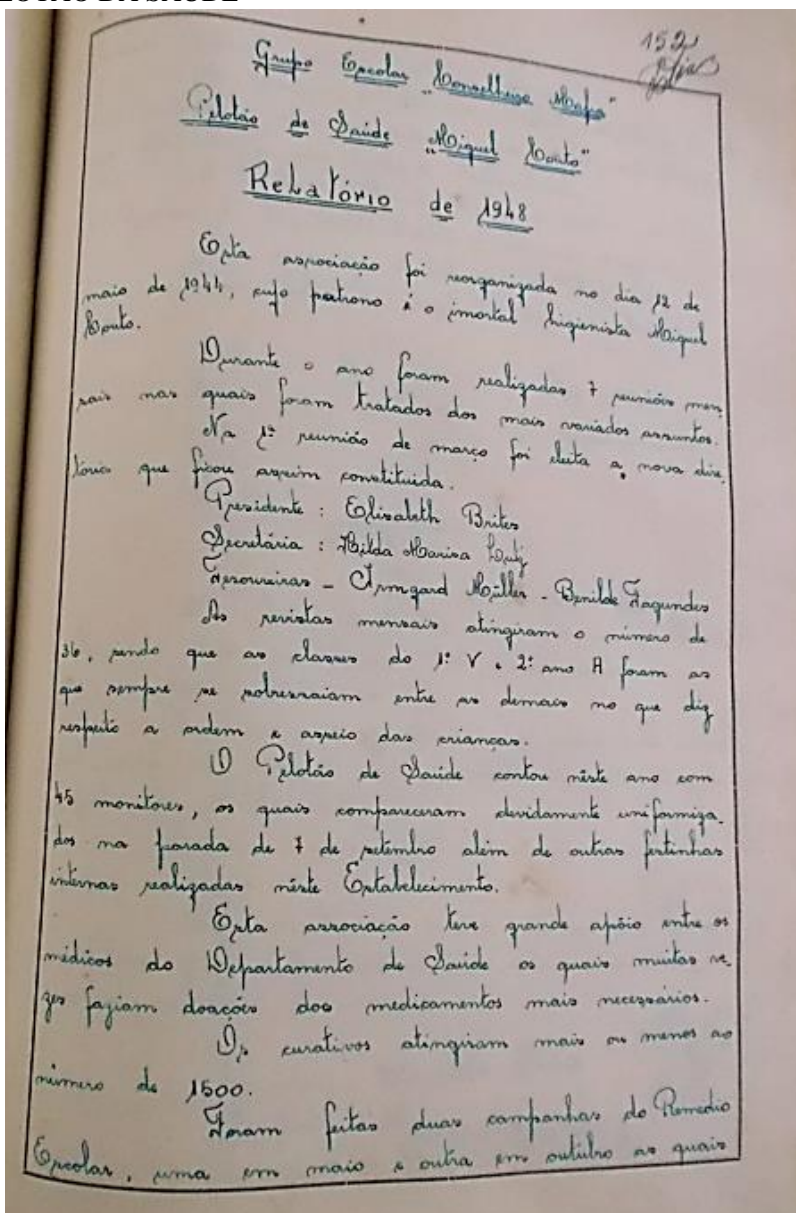 152
Grupo Escolar "Conselheiro Mafra"
Pelotão de Saúde "Miguel Couto"
Relatório de 1948
Esta associação foi reorganizada no dia 12 de
maio de 1944, cujo patrono é o imortal higienista Miguel
Couto.
Durante o ano foram realizadas 7 reuniões men
sais nas quais foram tratados dos mais variados assuntos.
Na 1ª reunião de março foi eleita a nova dire
tória que ficou assim constituida.
Presidente : Elisabeth Brites
Secretária : Hilda Marisa
Tesoureiras - Irmgard Müller - Benilde Fagundes
As revistas mensais atingiram o número de
36, sendo que as classes do 1º V e 2º ano A foram as
que sempre se sobressaiam entre as demais no que diz
respeito a ordem e asseio das crianças.
O Pelotão de Saúde contou nêste ano com
45 monitores, os quais compareceram devidamente uniformiza_
dos na parada de 7 de setembro além de outras festinhas
internas realizadas nêste Estabelecimento.
Esta associação teve grande apôio entre os
médicos do Departamento de Saúde os quais muitas ve_
zes faziam doações dos medicamentos mais necessários.
Os curativos atingiram mais ou menos ao
número de 1500.
Foram feitas duas campanhas do Remedio
Escolar, uma em maio e outra em outubro as quais